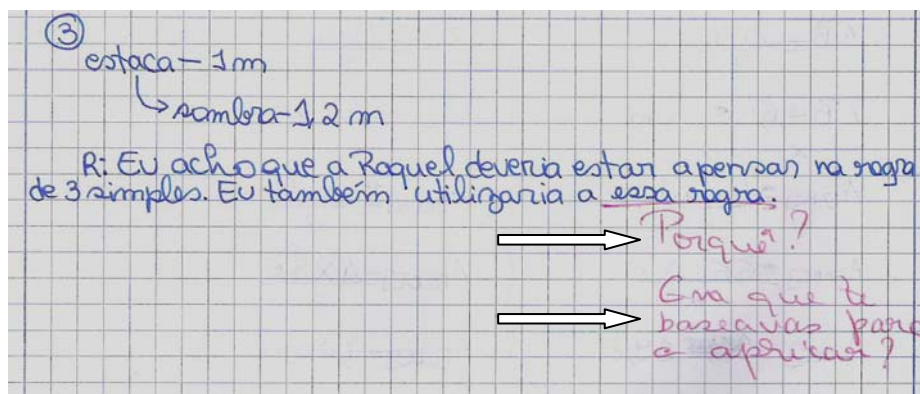 3
estaca - 1 m
sombra - 1,2 m
R: Eu acho que a Raquel deveria estar a pensar na regra
de 3 simples. Eu também utilizaria a essa regra.
Porquê?
Em que te
baseavas para
a aplicar?